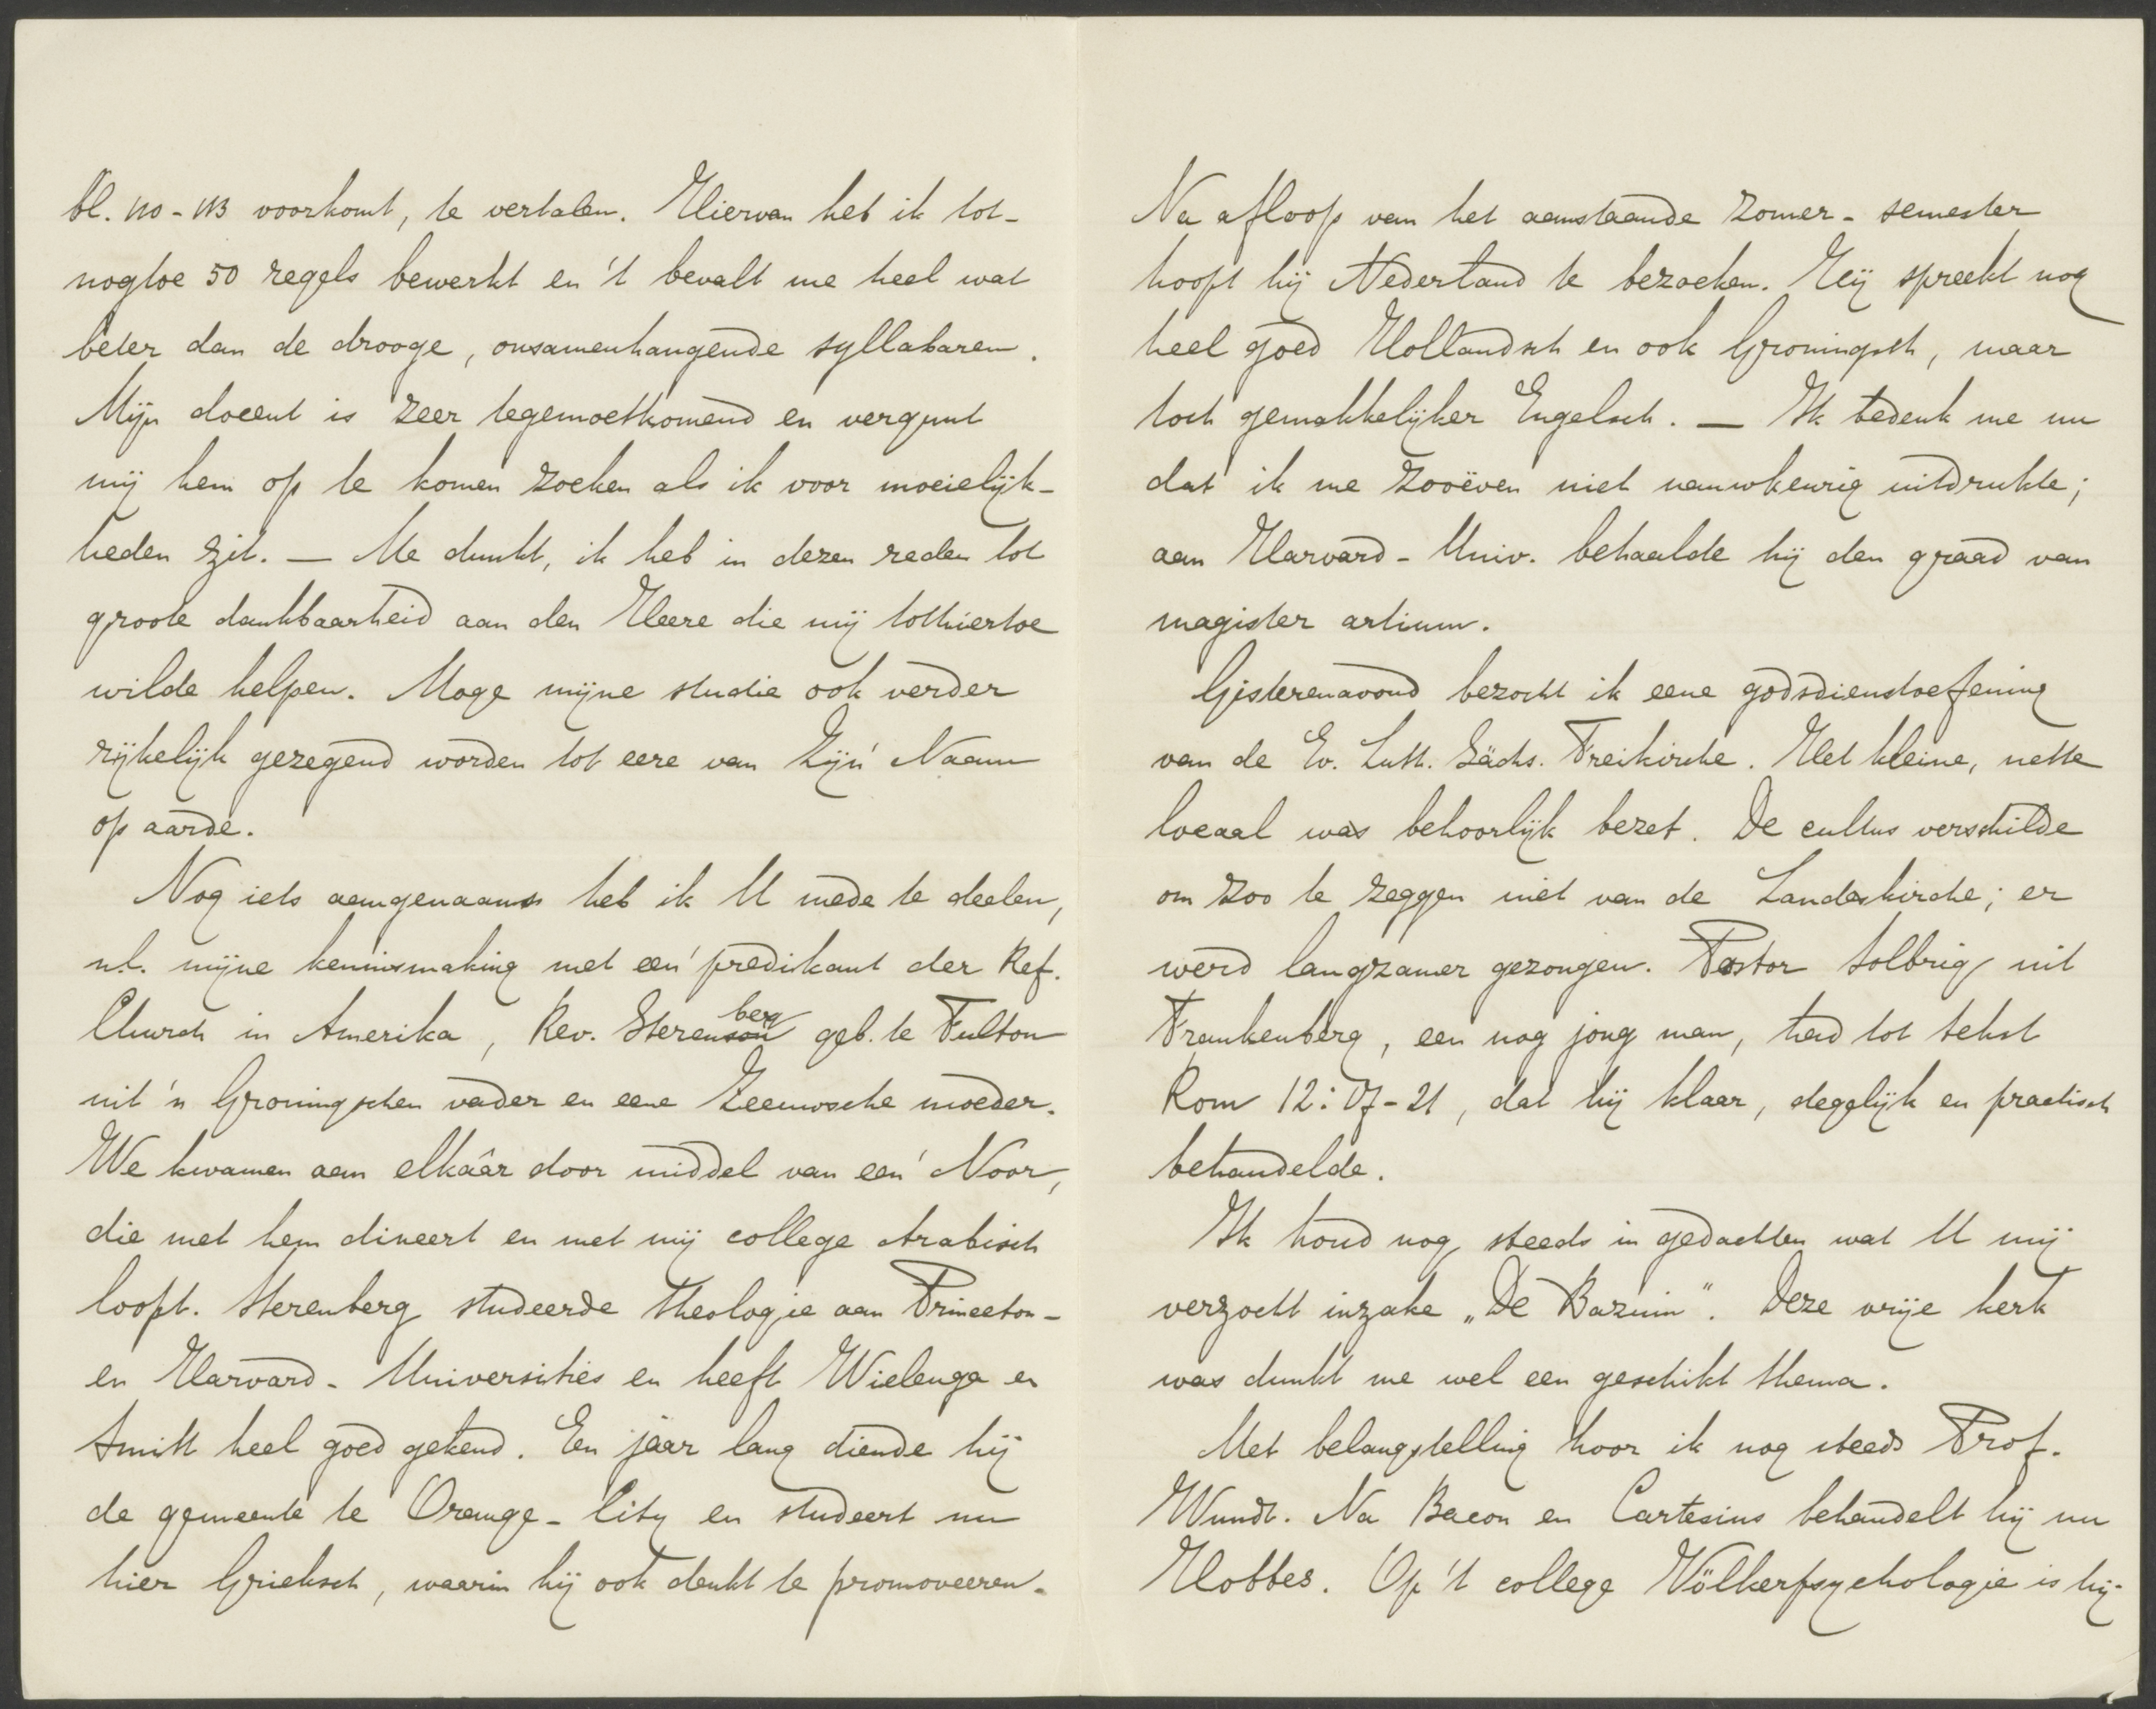 bl. 110-113 voorkomt, te vertalen. Hiervan heb ik tot-
nogtoe 50 regels bewerkt en 't bevalt me heel wat
beter dan de drooge, onsamenhangende syllabaren.
Mijn docent is zeer tegemoetkomend en vergunt
mij hem op te komen zoeken als ik voor moeielijk-
heden zit. — Me dunkt, ik heb in dezen reden tot
groote dankbaarheid aan den Heere die mij tothiertoe
wilde helpen. Moge mijne studie ook verder
rijkelijk gezegend worden tot eere van Zijn' Naam
op aarde.
Nog iets aangenaams heb ik U mede te deelen,
n.l. mijne kennismaking met een' predikant der Ref.
Church in Amerika, Rev. Sterenberg geb. te Fulton
uit 'n Groningschen vader en eene Zeeuwsche moeder.
We kwamen aan elkâar door middel van een' Noor,
die met hem dineert en met mij college Arabisch
loopt. Sterenberg studeerde theologie aan Princeton-
en Harvard-Universities en heeft Wielenga en
Smitt heel goed gekend. Een jaar lang diende hij
de gemeente te Orange-City en studeert nu
hier Grieksch, waarin hij ook denkt te promoveeren.
Na afloop van het aanstaande zomer-semester
hoopt hij Nederland te bezoeken. Hij spreekt nog
heel goed Hollandsch en ook Groningsch, maar
toch gemakkelijker Engelsch. — Ik bedenk me nu
dat ik me zooëven niet nauwkeurig uitdrukte;
aan Harvard-Univ. behaalde hij den graad van
magister artium.
Gisterenavond bezocht ik eene godsdienstoefening
van de Ev. Luth. Sächs. Freikirche. Het kleine, nette
locaal was behoorlijk bezet. De cultus verschilde
om zoo te zeggen niet van de Landeskirche; er
werd langzamer gezongen. Pastor Solbrig uit
Frankenberg, een nog jong man, had tot tekst
Rom 12:17-21, dat hij klaar, degelijk en practisch
behandelde.
Ik houd nog steeds in gedachten wat U mij
verzocht inzake „De Bazuin". Deze vrije kerk
was dunkt me wel een geschikt thema.
Met belangstelling hoor ik nog steeds Prof.
Wundt. Na Bacon en Cartesius behandelt hij nu
Hobbes. Op 't college Völkerpsychologie is hij